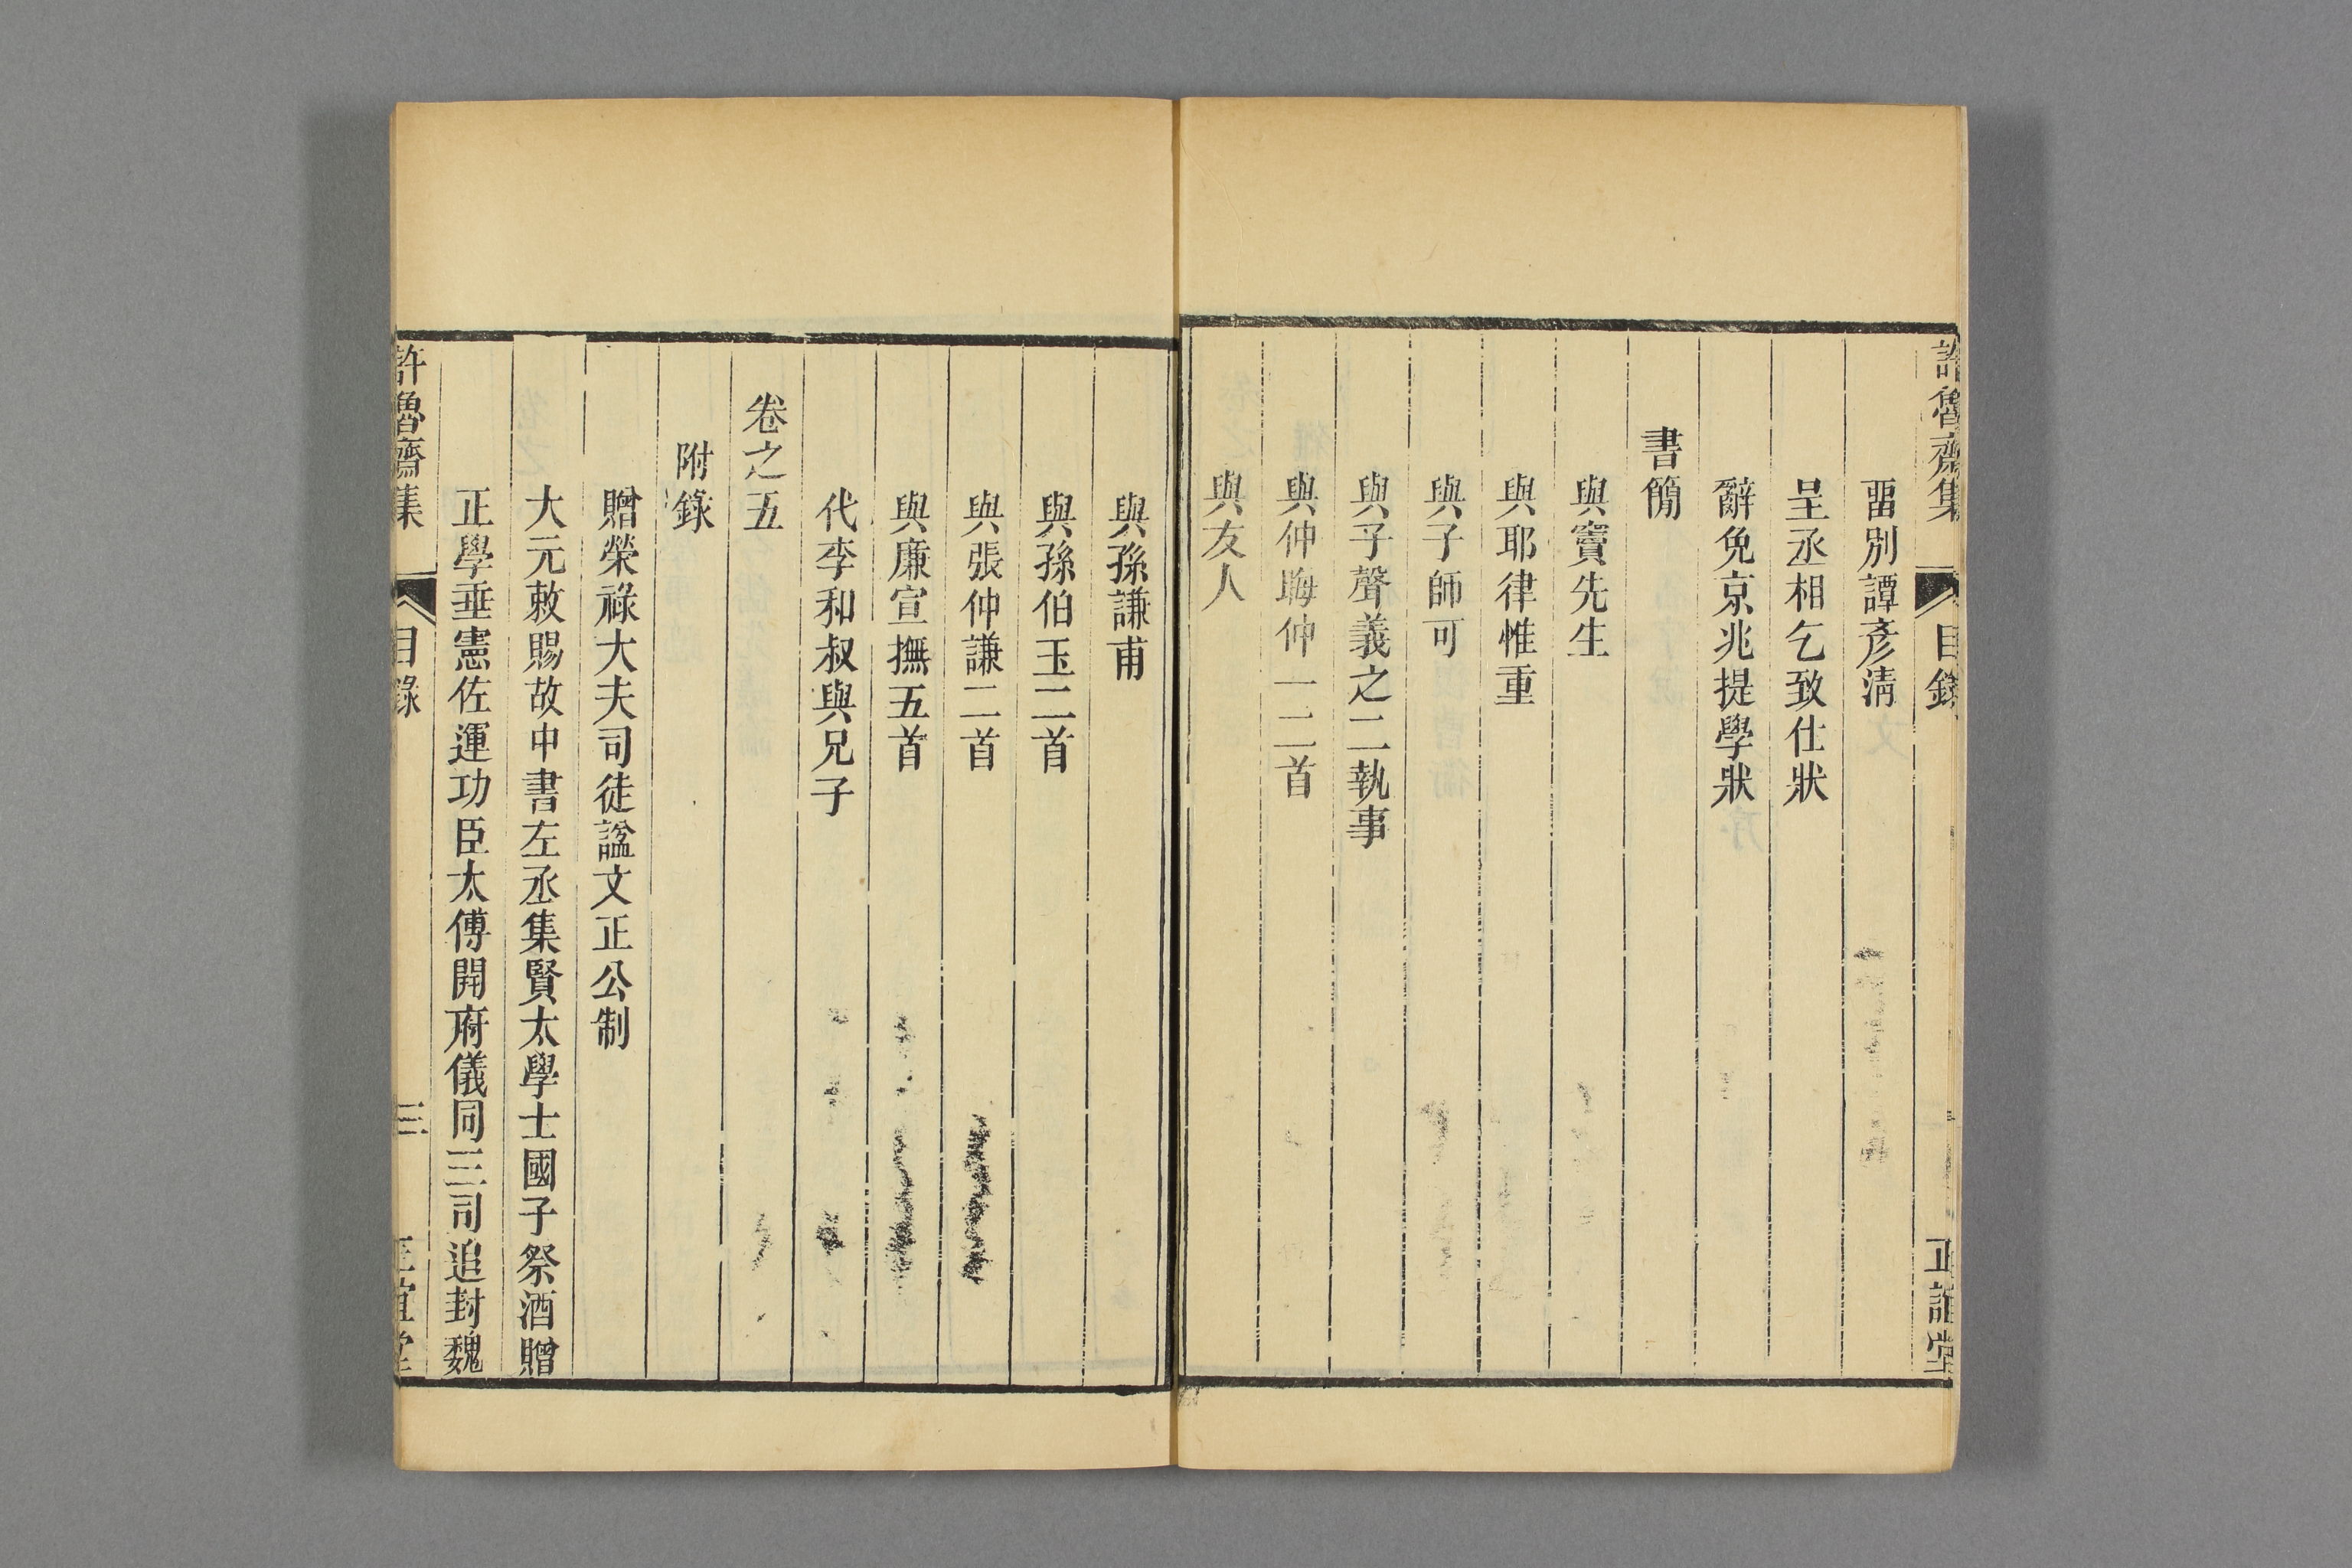 許魯齋集 目錄 正誼堂
畱別譚彥清
呈丞相乞致仕狀
辭免京兆提學狀
書簡
與竇先生
與耶律惟重
與子師可
與子聲義之二執事
與仲晦仲一二首
與友人
與孫謙甫
與孫伯玉二首
與張仲謙二首
與廉宣撫五首
代李和叔與兄子
卷之五
附錄
贈榮祿大夫司徒諡文正公制
大元敕賜故中書左丞集賢太學士國子祭酒贈
正學垂憲佐運功臣太傅開府儀同三司追封魏
許魯齋集 目錄 三 正誼堂